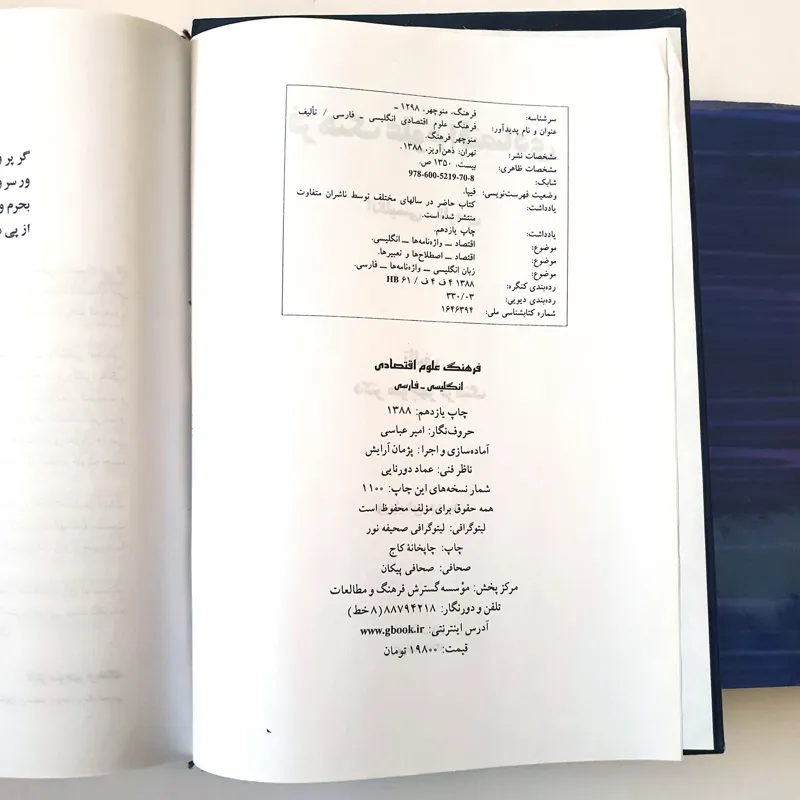 سرشناسه: فرهنگ، منوچهر، ۱۲۹۸ ـ
عنوان و نام پدیدآور: فرهنگ علوم اقتصادی انگلیسی ـ فارسی / تألیف
منوچهر فرهنگ.
مشخصات نشر: تهران: ذهن‌آویز، ۱۳۸۸.
مشخصات ظاهری: بیست، ۱۳۵۰ ص.
شابک: 978-600-5219-70-8
وضعیت فهرست‌نویسی: فیپا.
یادداشت: کتاب حاضر در سالهای مختلف توسط ناشران متفاوت
منتشر شده است.
یادداشت: چاپ یازدهم.
موضوع: اقتصاد ــ واژه‌نامه‌ها ــ انگلیسی.
موضوع: اقتصاد ــ اصطلاح‌ها و تعبیرها.
موضوع: زبان انگلیسی ــ واژه‌نامه‌ها ــ فارسی.
رده‌بندی کنگره: ۱۳۸۸ ۴ ف ۴ ف / ۶۱ HB
رده‌بندی دیویی: ۳۳۰/۰۳
شماره کتابشناسی ملی: ۱۶۴۶۳۹۴
فرهنگ علوم اقتصادی
انگلیسی ـ فارسی
چاپ یازدهم: ۱۳۸۸
حروف‌نگار: امیر عباسی
آماده‌سازی و اجرا: پژمان آرایش
ناظر فنی: عماد دورنایی
شمار نسخه‌های این چاپ: ۱۱۰۰
همه حقوق برای مؤلف محفوظ است
لیتوگرافی: لیتوگرافی صحیفه نور
چاپ: چاپخانهٔ کاج
صحافی: صحافی پیکان
مرکز پخش: مؤسسه گسترش فرهنگ و مطالعات
تلفن و دورنگار: ۸۸۷۹۴۲۱۸ (۸ خط)
آدرس اینترنتی: www.gbook.ir
قیمت: ۱۹۸۰۰ تومان
گر پر و
ور سر و
بحرم و
از پی